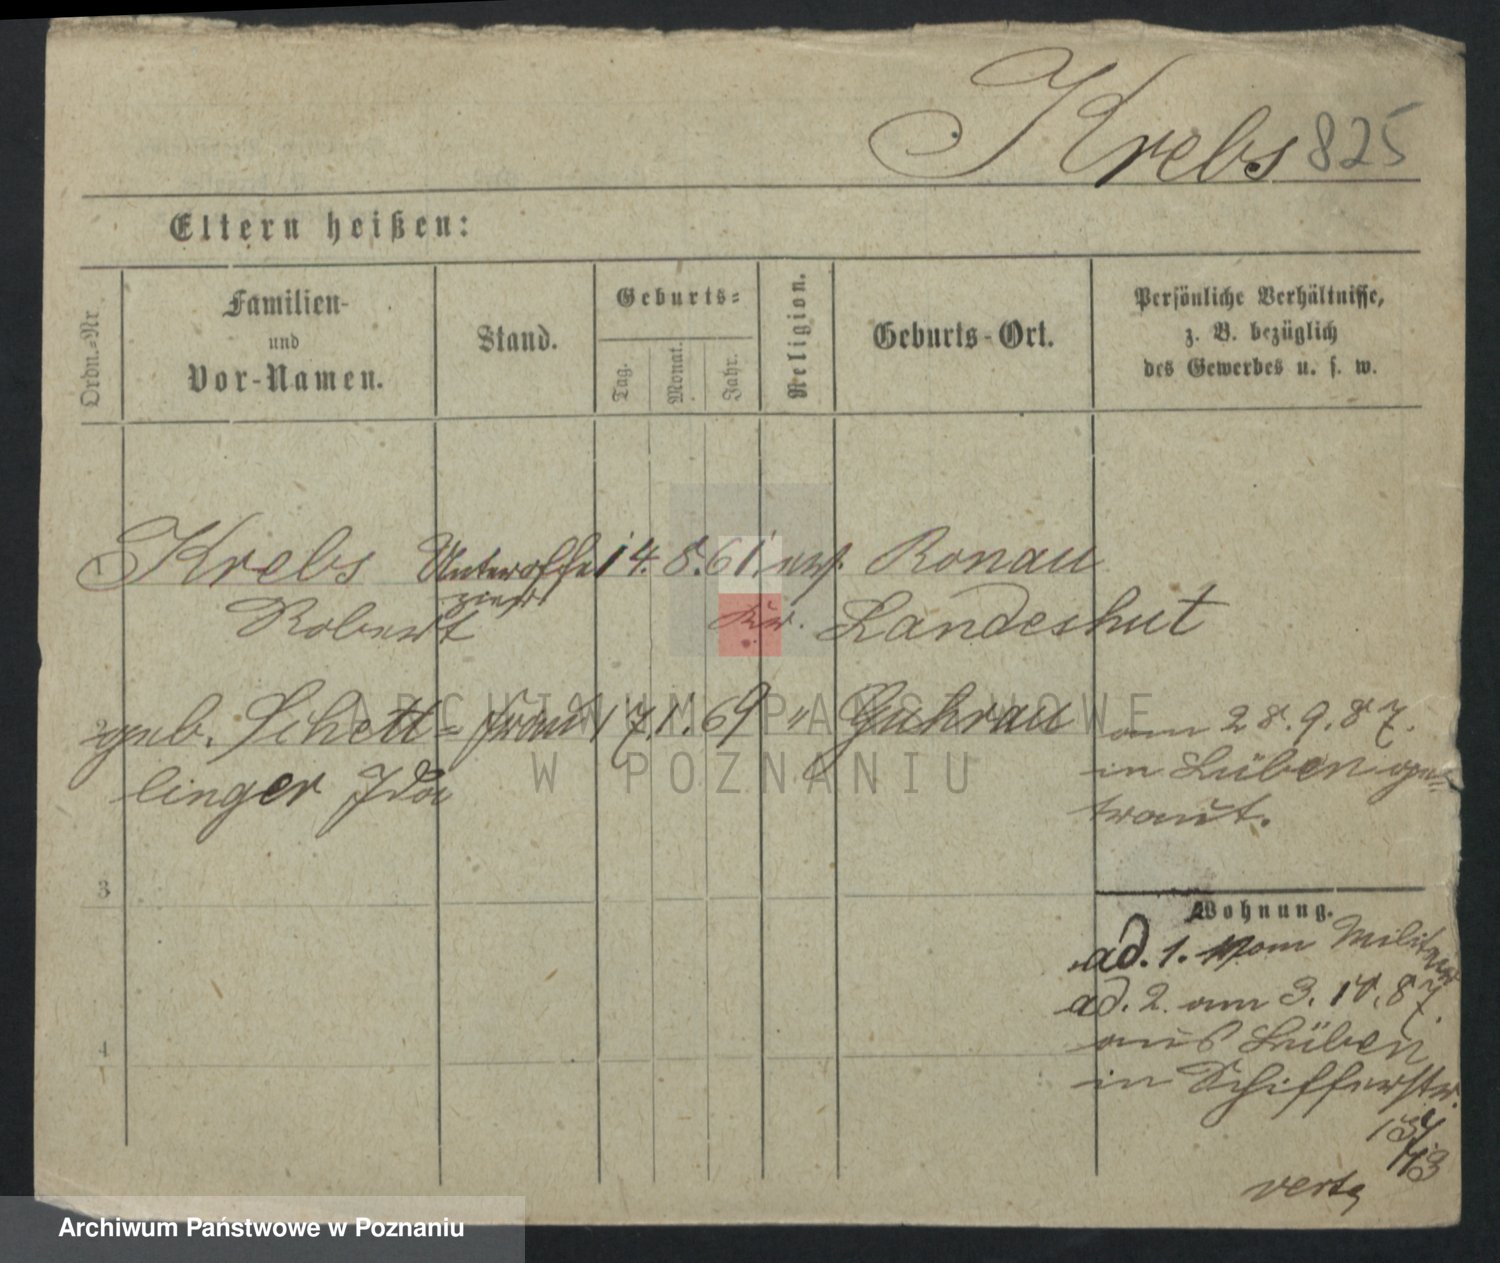 Krebs 825
Eltern heißen:
Ordn.-Nr. Familien- und Vor-Namen. Stand. Geburts- Tag. Monat. Jahr. Religion. Geburts-Ort. Persönliche Verhältnisse, z. B. bezüglich des Gewerbes u. s. w.
1 Krebs Unteroffi 14. 8. 61. ev. Ronau
Robert zier Kr. Landeshut
2 geb. Schett= Frau 17. 1. 69 " Guhrau am 28. 9. 87.
linger Ida in Lüben ge=
traut.
3
Wohnung.
ad. 1. vom Militair
ad. 2. am 3. 10. 87.
4 aus Lüben
in Schifferstr.
13
verte
ARCHIWUM PAŃSTWOWE
W POZNANIU
Archiwum Państwowe w Poznaniu